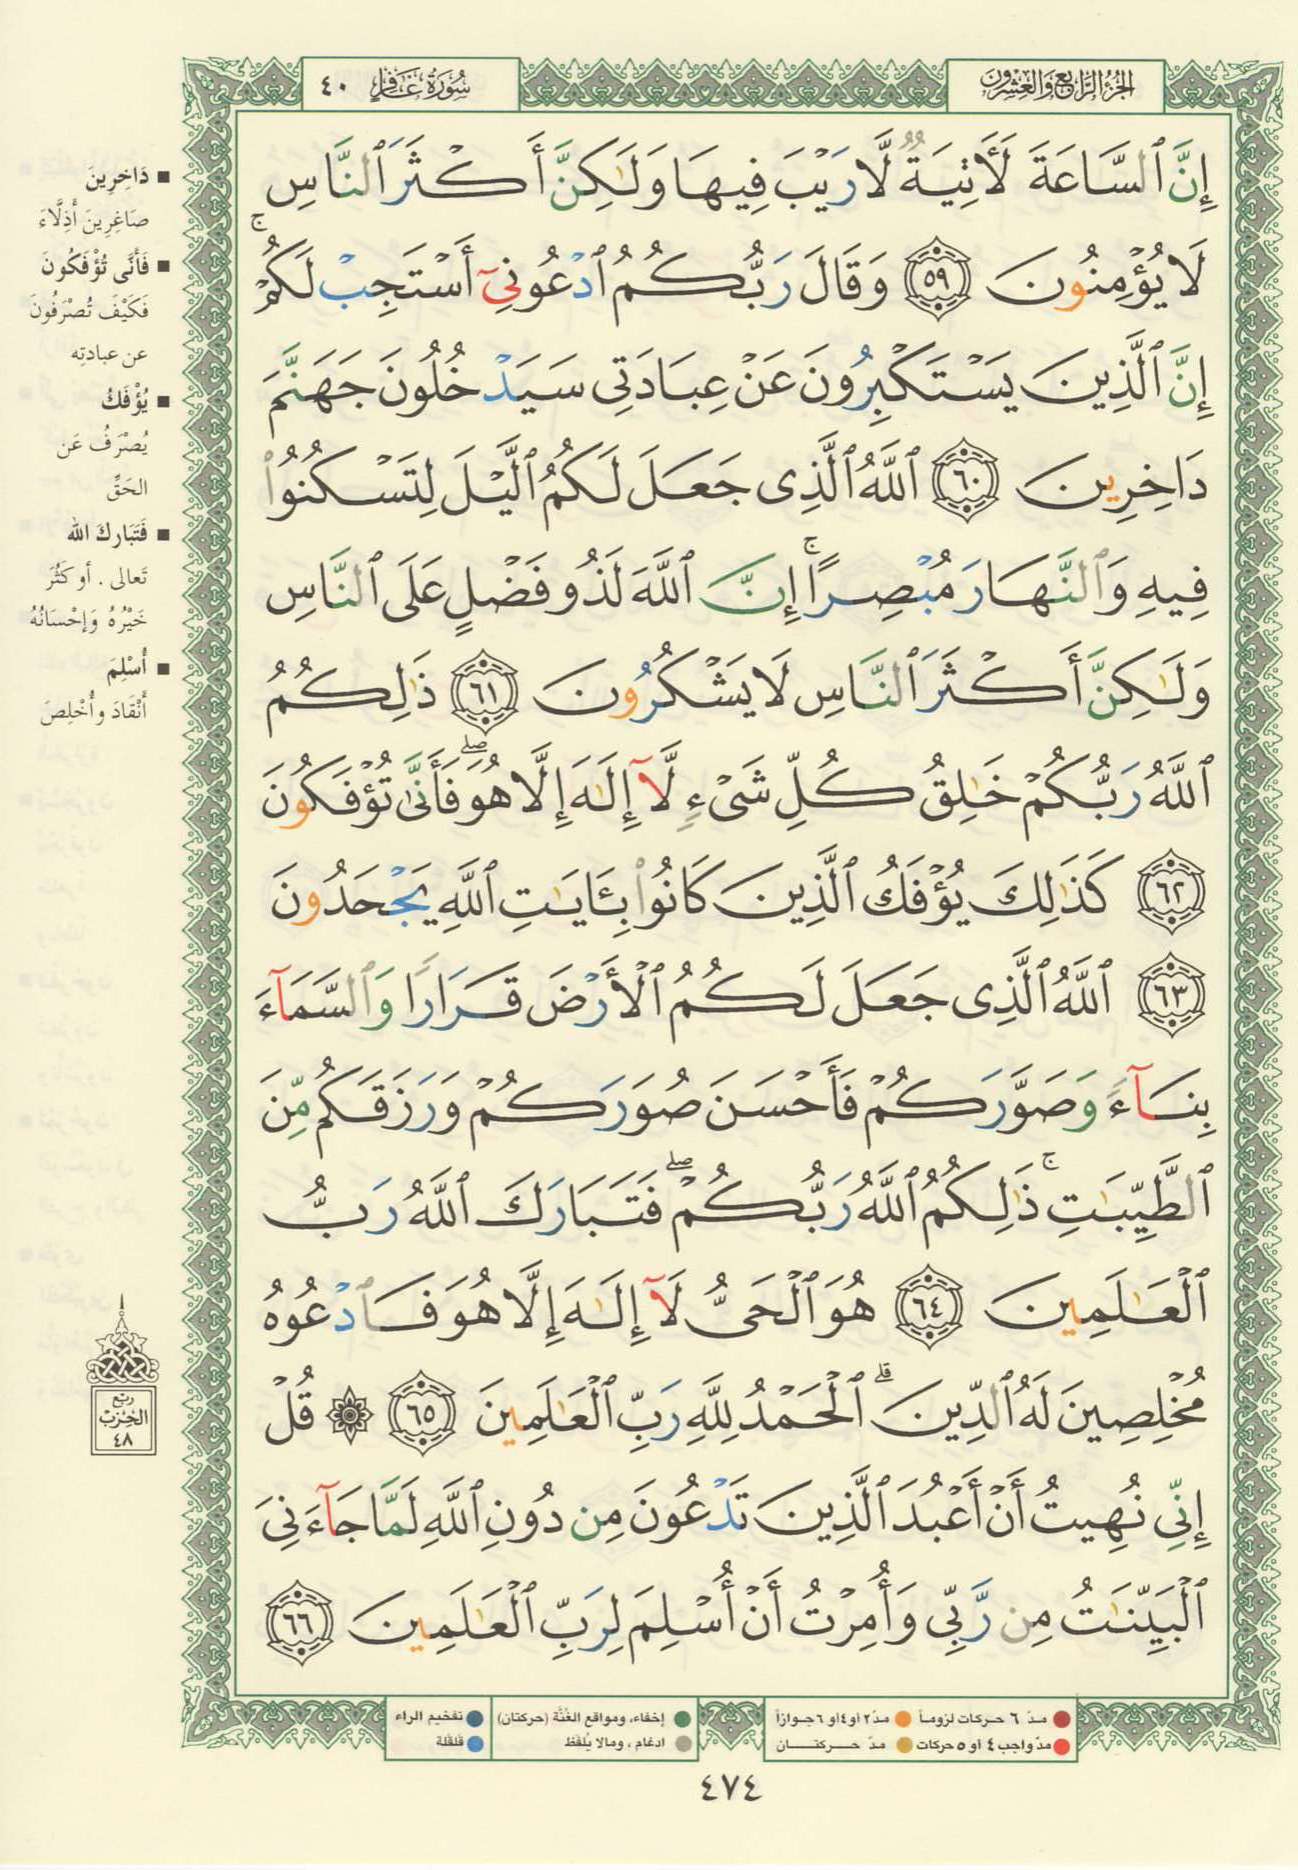 الجزء الرابع والعشرون
سورة غافر ٤٠
إِنَّ ٱلسَّاعَةَ لَأَتِيَةٌ لَّا رَيْبَ فِيهَا وَلَٰكِنَّ أَكْثَرَ ٱلنَّاسِ
لَا يُؤْمِنُونَ ٥٩ وَقَالَ رَبُّكُمُ ٱدْعُونِىٓ أَسْتَجِبْ لَكُمْ ۚ
إِنَّ ٱلَّذِينَ يَسْتَكْبِرُونَ عَنْ عِبَادَتِى سَيَدْخُلُونَ جَهَنَّمَ
دَاخِرِينَ ٦٠ ٱللَّهُ ٱلَّذِى جَعَلَ لَكُمُ ٱلَّيْلَ لِتَسْكُنُوا۟
فِيهِ وَٱلنَّهَارَ مُبْصِرًا ۚ إِنَّ ٱللَّهَ لَذُو فَضْلٍ عَلَى ٱلنَّاسِ
وَلَٰكِنَّ أَكْثَرَ ٱلنَّاسِ لَا يَشْكُرُونَ ٦١ ذَٰلِكُمُ
ٱللَّهُ رَبُّكُمْ خَٰلِقُ كُلِّ شَىْءٍ لَّآ إِلَٰهَ إِلَّا هُوَ ۖ فَأَنَّىٰ تُؤْفَكُونَ
٦٢ كَذَٰلِكَ يُؤْفَكُ ٱلَّذِينَ كَانُوا۟ بِـَٔايَٰتِ ٱللَّهِ يَجْحَدُونَ
٦٣ ٱللَّهُ ٱلَّذِى جَعَلَ لَكُمُ ٱلْأَرْضَ قَرَارًا وَٱلسَّمَآءَ
بِنَآءً وَصَوَّرَكُمْ فَأَحْسَنَ صُوَرَكُمْ وَرَزَقَكُم مِّنَ
ٱلطَّيِّبَٰتِ ۚ ذَٰلِكُمُ ٱللَّهُ رَبُّكُمْ ۖ فَتَبَارَكَ ٱللَّهُ رَبُّ
ٱلْعَٰلَمِينَ ٦٤ هُوَ ٱلْحَىُّ لَآ إِلَٰهَ إِلَّا هُوَ فَٱدْعُوهُ
مُخْلِصِينَ لَهُ ٱلدِّينَ ۗ ٱلْحَمْدُ لِلَّهِ رَبِّ ٱلْعَٰلَمِينَ ٦٥ ۞ قُلْ
إِنِّى نُهِيتُ أَنْ أَعْبُدَ ٱلَّذِينَ تَدْعُونَ مِن دُونِ ٱللَّهِ لَمَّا جَآءَنِىَ
ٱلْبَيِّنَٰتُ مِن رَّبِّى وَأُمِرْتُ أَنْ أُسْلِمَ لِرَبِّ ٱلْعَٰلَمِينَ ٦٦
■ دَاخِرِينَ
صَاغِرِينَ أَذِلَّاءَ
■ فَأَنَّى تُؤْفَكُونَ
فَكَيْفَ تُصْرَفُونَ
عن عبادتِه
■ يُؤْفَكُ
يُصْرَفُ عَن
الحَقِّ
■ فَتَبَارَكَ الله
تَعالى . أو كَثُرَ
خَيْرُهُ وَإِحْسَانُهُ
■ أُسْلِمَ
أَنْقَادَ وأُخْلِصَ
ربع
الحزب
٤٨
مدّ ٦ حركات لزوماً
مدّ ٢ أو ٤ أو ٦ جوازاً
مدّ واجب ٤ أو ٥ حركات
مدّ حركتان
إخفاء، ومواقع الغُنَّة (حركتان)
ادغام ، ومالا يُلفَظ
تفخيم الراء
قلقلة
٤٧٤